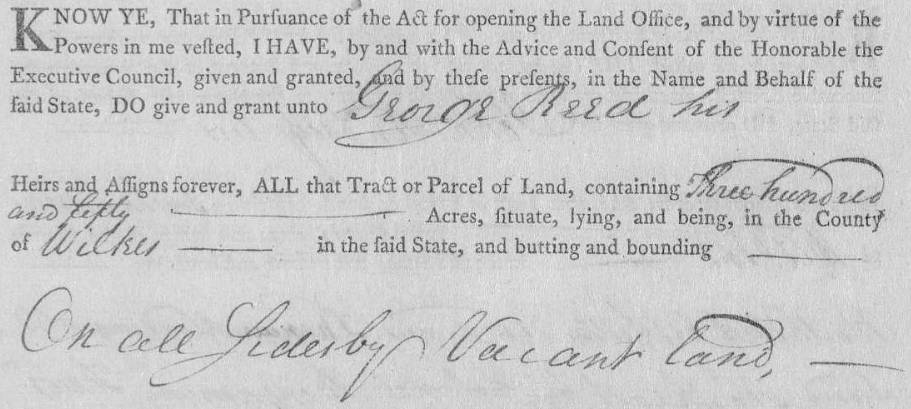 KNOW YE, That in Purſuance of the Act for opening the Land Office, and by virtue of the
Powers in me veſted, I HAVE, by and with the Advice and Conſent of the Honorable the
Executive Council, given and granted, and by theſe preſents, in the Name and Behalf of the
ſaid State, DO give and grant unto George Reed his
Heirs and Aſſigns forever, ALL that Tract or Parcel of Land, containing Three hundred
and fifty Acres, ſituate, lying, and being, in the County
of Wilkes in the ſaid State, and butting and bounding
On all Sides by Vacant land,